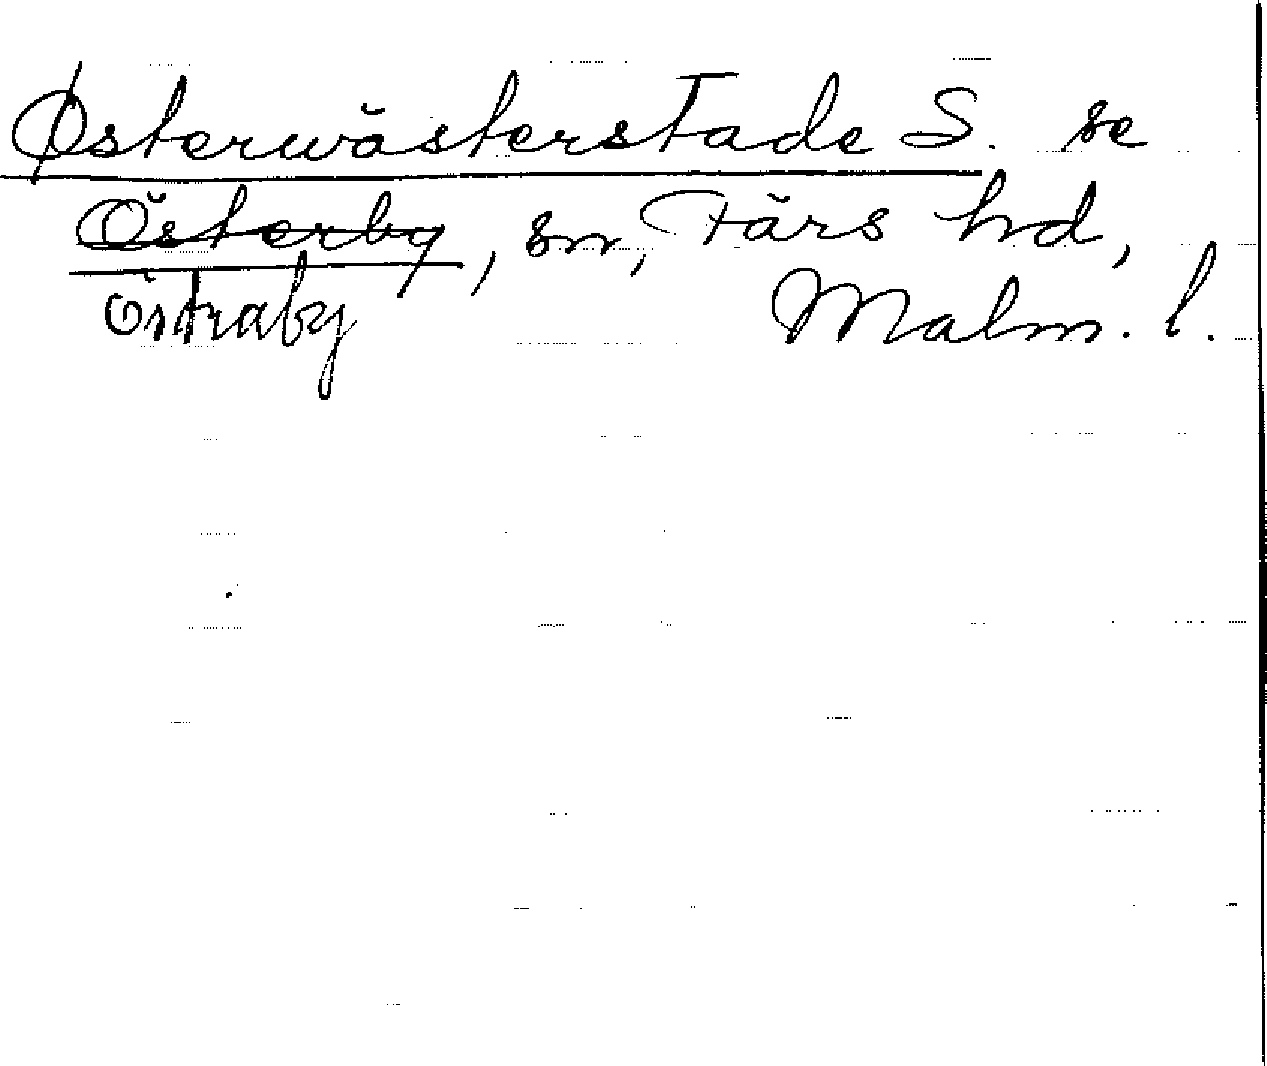 Østerwästerstade S. se
Österby, sn, Färs hd,
Östraby Malm. l.